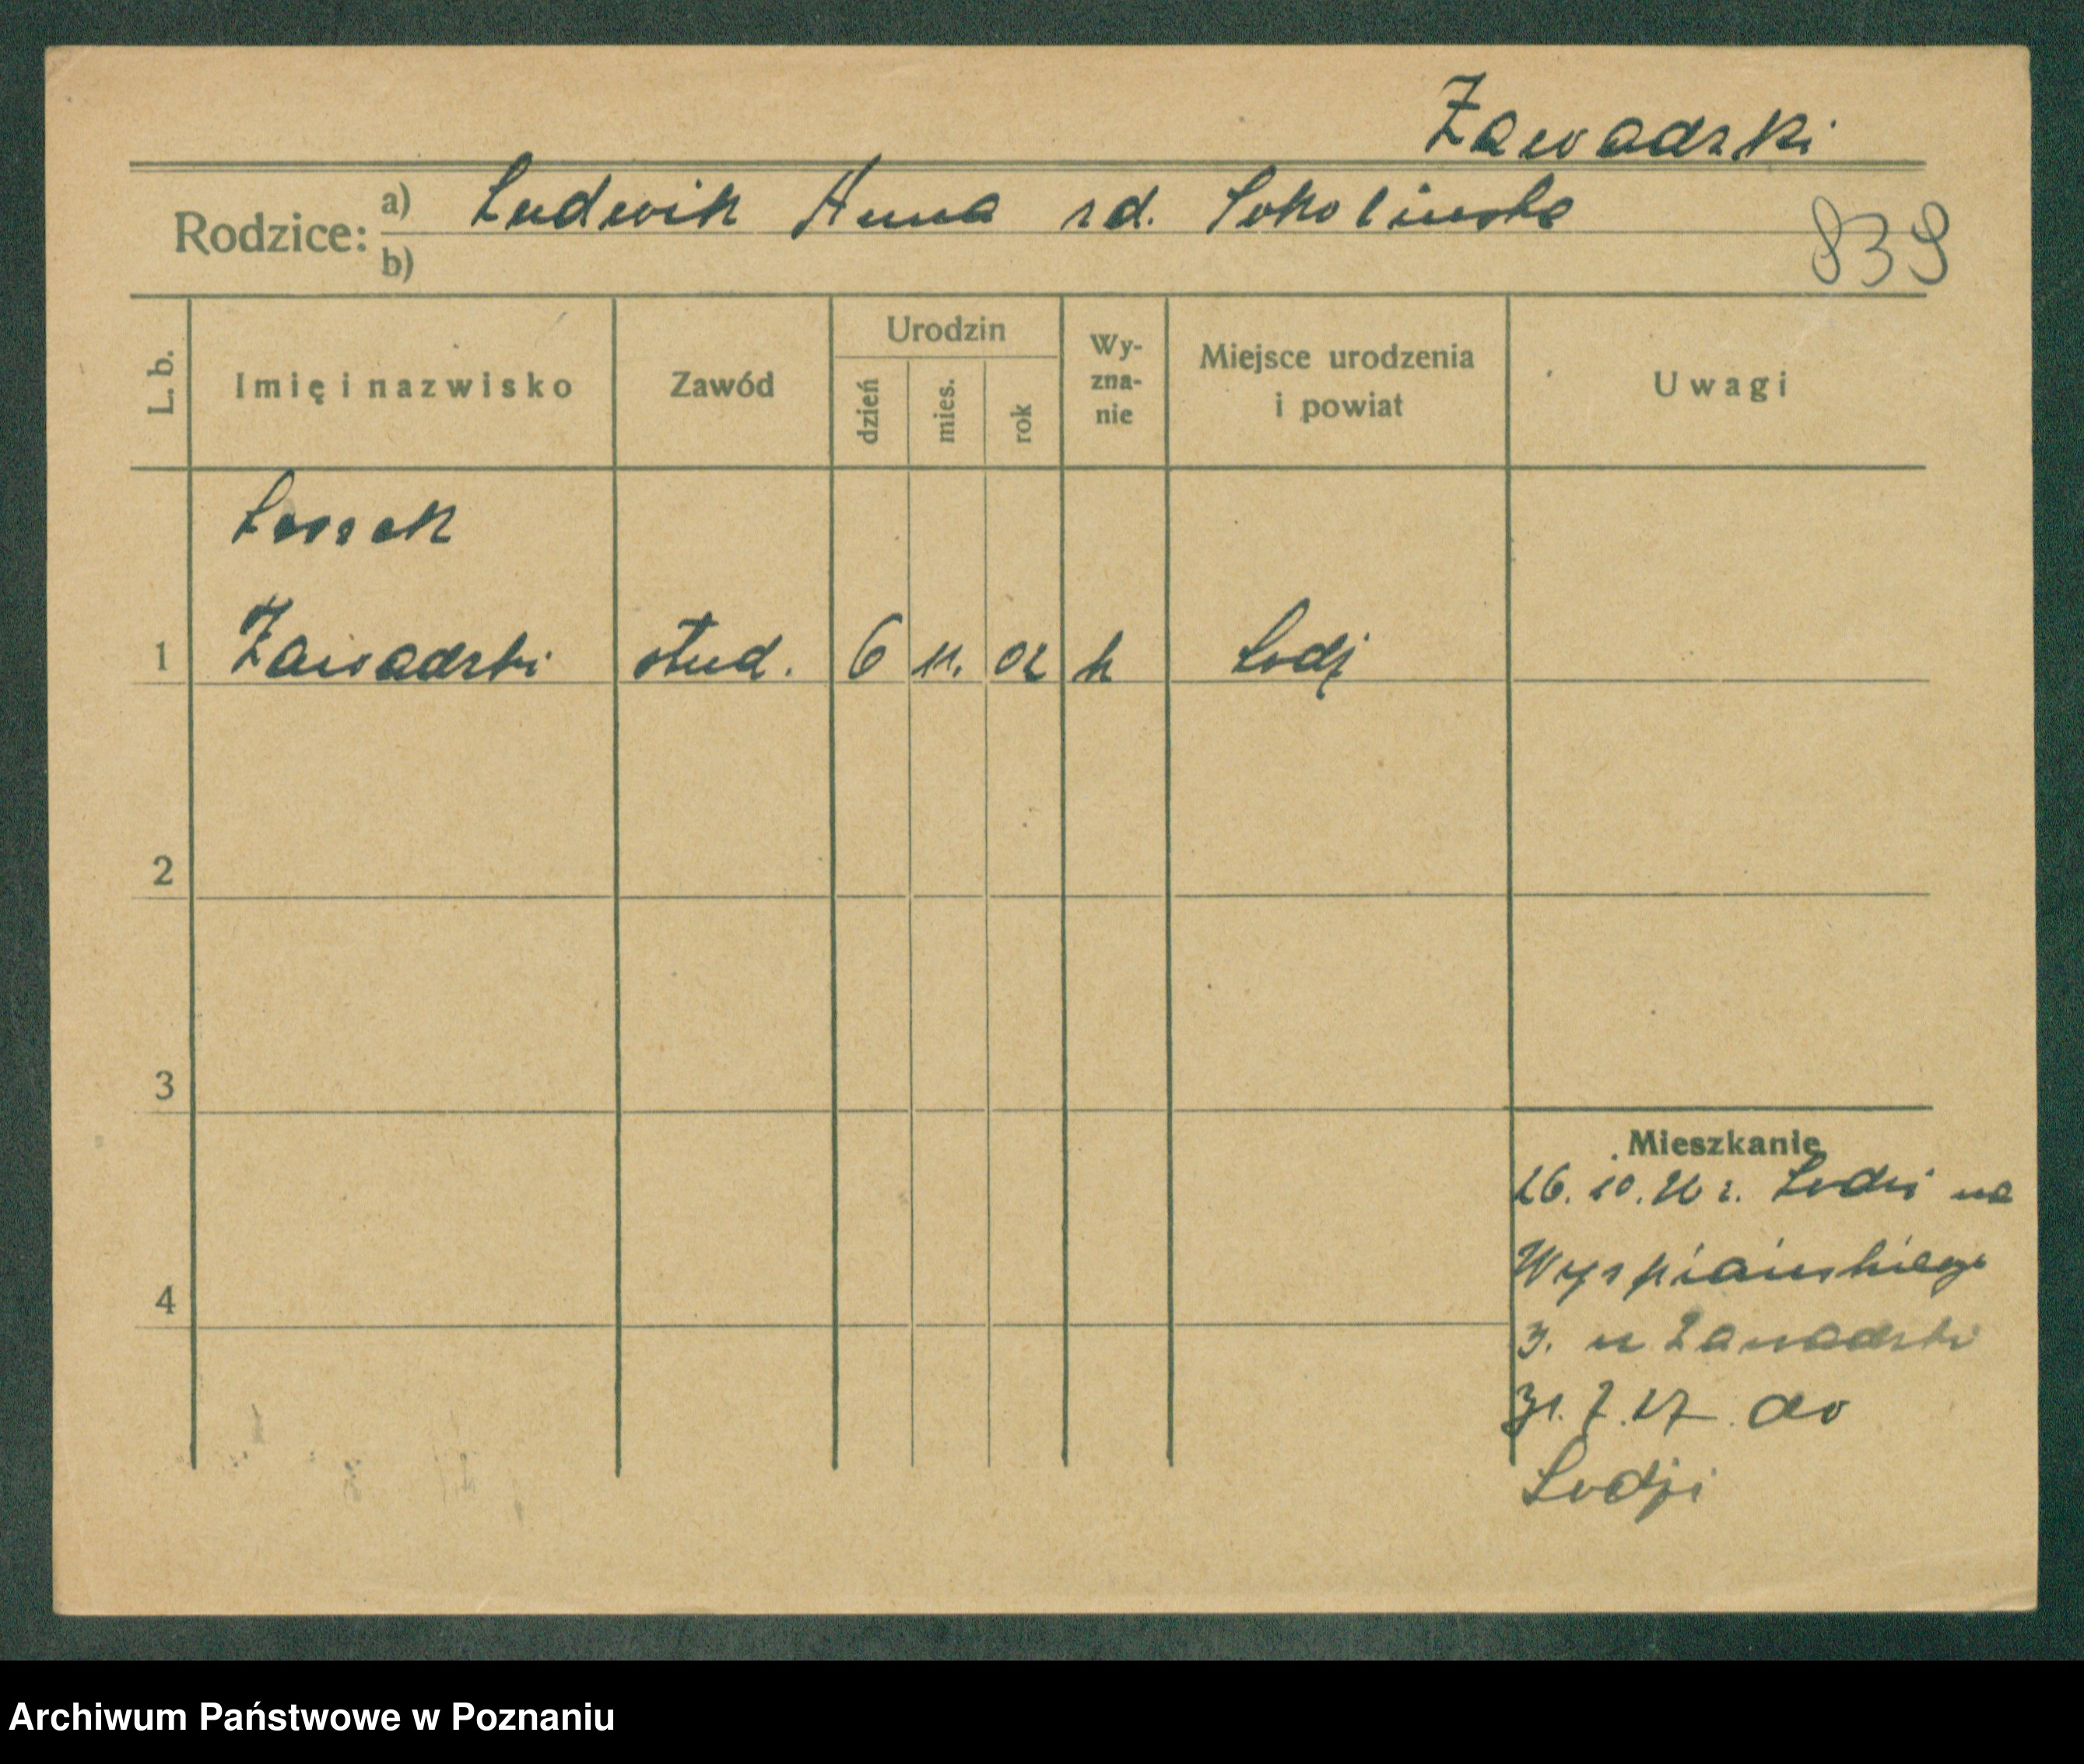 Zawadzki
Rodzice: a) Ludwik Anna zd. Sokolinska
b)
839
L. b.
Imię i nazwisko
Zawód
Urodzin
dzień
mies.
rok
Wy-
zna-
nie
Miejsce urodzenia
i powiat
Uwagi
Leszek
1 Zawadzki stud. 6 11. 02 k Lodz
2
3
4
Mieszkanie
26. 10. 26 z Lodzi na
Wyspiańskiego
3. u Zawadzki
31. 7. 27 do
Lodzi
Archiwum Państwowe w Poznaniu